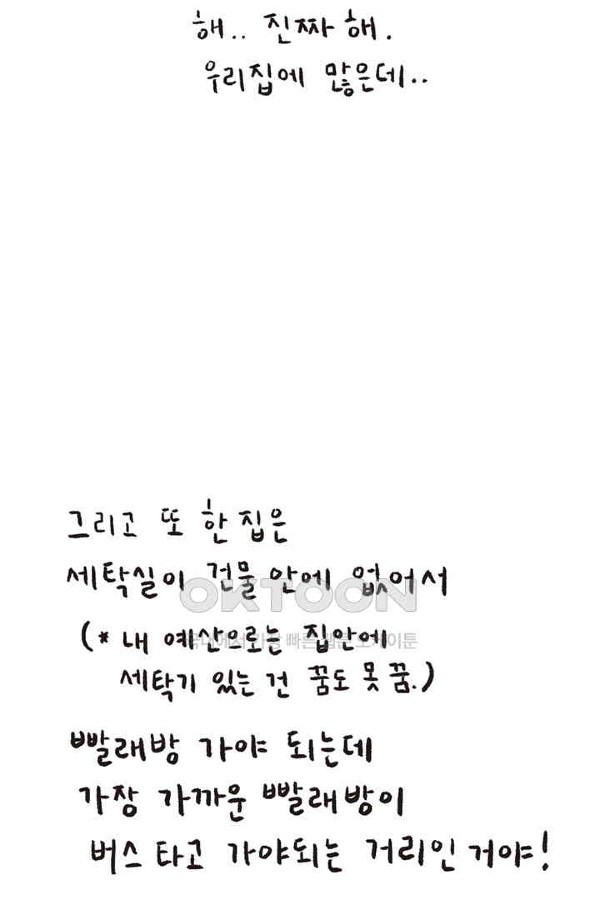 해.. 진짜 해.
우리집에 많은데..
그리고 또 한 집은
세탁실이 건물 안에 없어서
OKTOON
(* 내 예산으로는 집안에
세탁기 있는 건 꿈도 못 꿈.)
빨래방 가야 되는데
가장 가까운 빨래방이
버스 타고 가야되는 거리인거야!